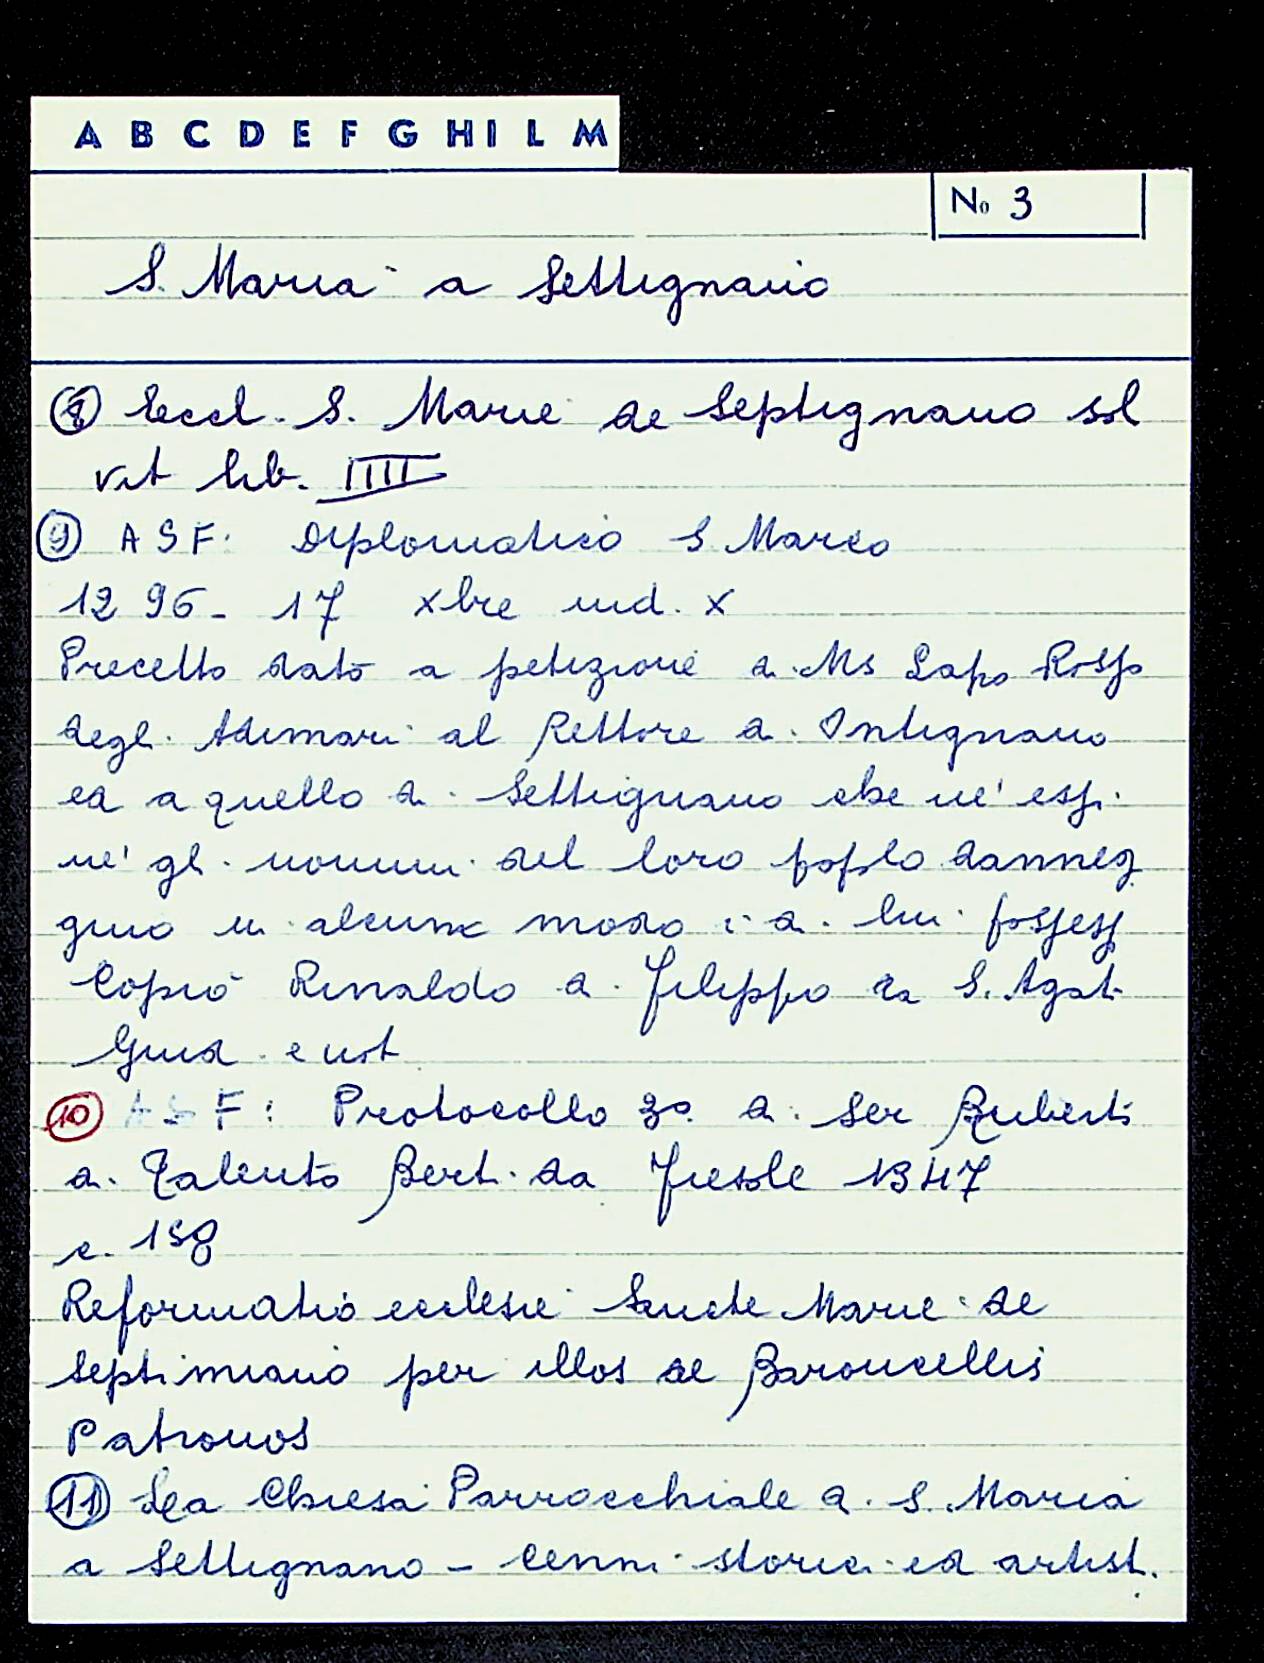 A B C D E F G H I L M
No 3
S. Maria a Settignano
8 Eccl. S. Marie de Septignano sol
vit lib. IIII
9 ASF: Diplomatico S. Marco
1296 - 17 xbre ind. X
Precetto dato a petizione di Ms Lapo Rosso
degli Adimari al Rettore di Ontignano
ed a quello di Settignano che né essi
né gli uomini del loro popolo danneg
gino in alcuno modo i di lui possess
Copiò Rinaldo di Filippo da S. Agat
Giud. e not
10 ASF: Protocollo 3º di Ser Ruberto
di Talento Bert. da Fiesole 1347
c. 158
Reformatio ecclesie Sancte Marie de
Septimiano per illos de Baroncellis
Patronos
11 La Chiesa Parrocchiale di S. Maria
a Settignano - Cenni storici ed artist.